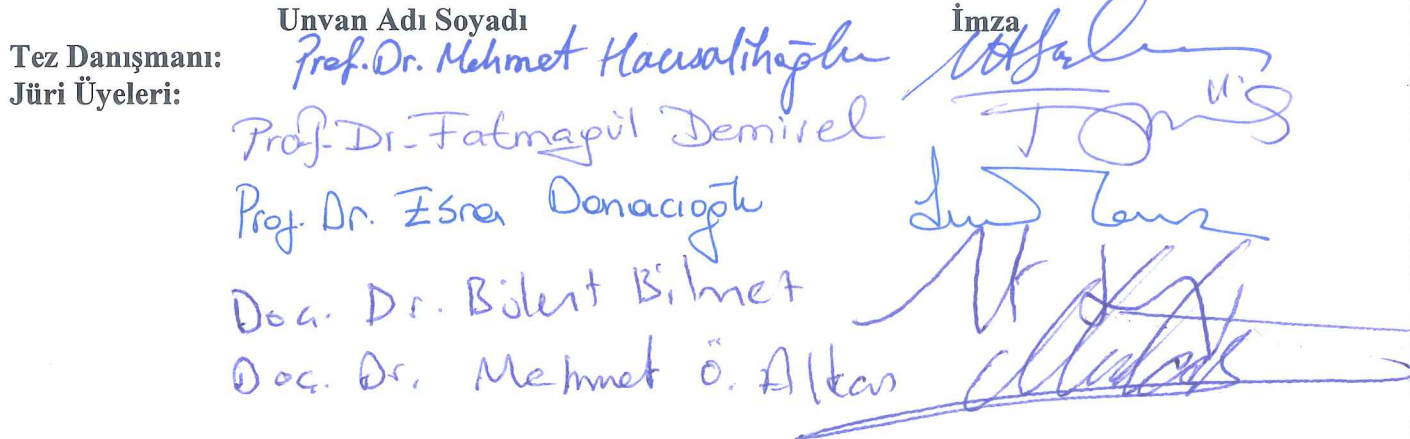 Unvan Adı Soyadı İmza
Tez Danışmanı: Prof. Dr. Mehmet Hacısalihoğlu
Jüri Üyeleri:
Prof. Dr. Fatmagül Demirel
Prof. Dr. Esra Danacıoğlu
Doç. Dr. Bülent Bilmez
Doç. Dr. Mehmet Ö. Alkan